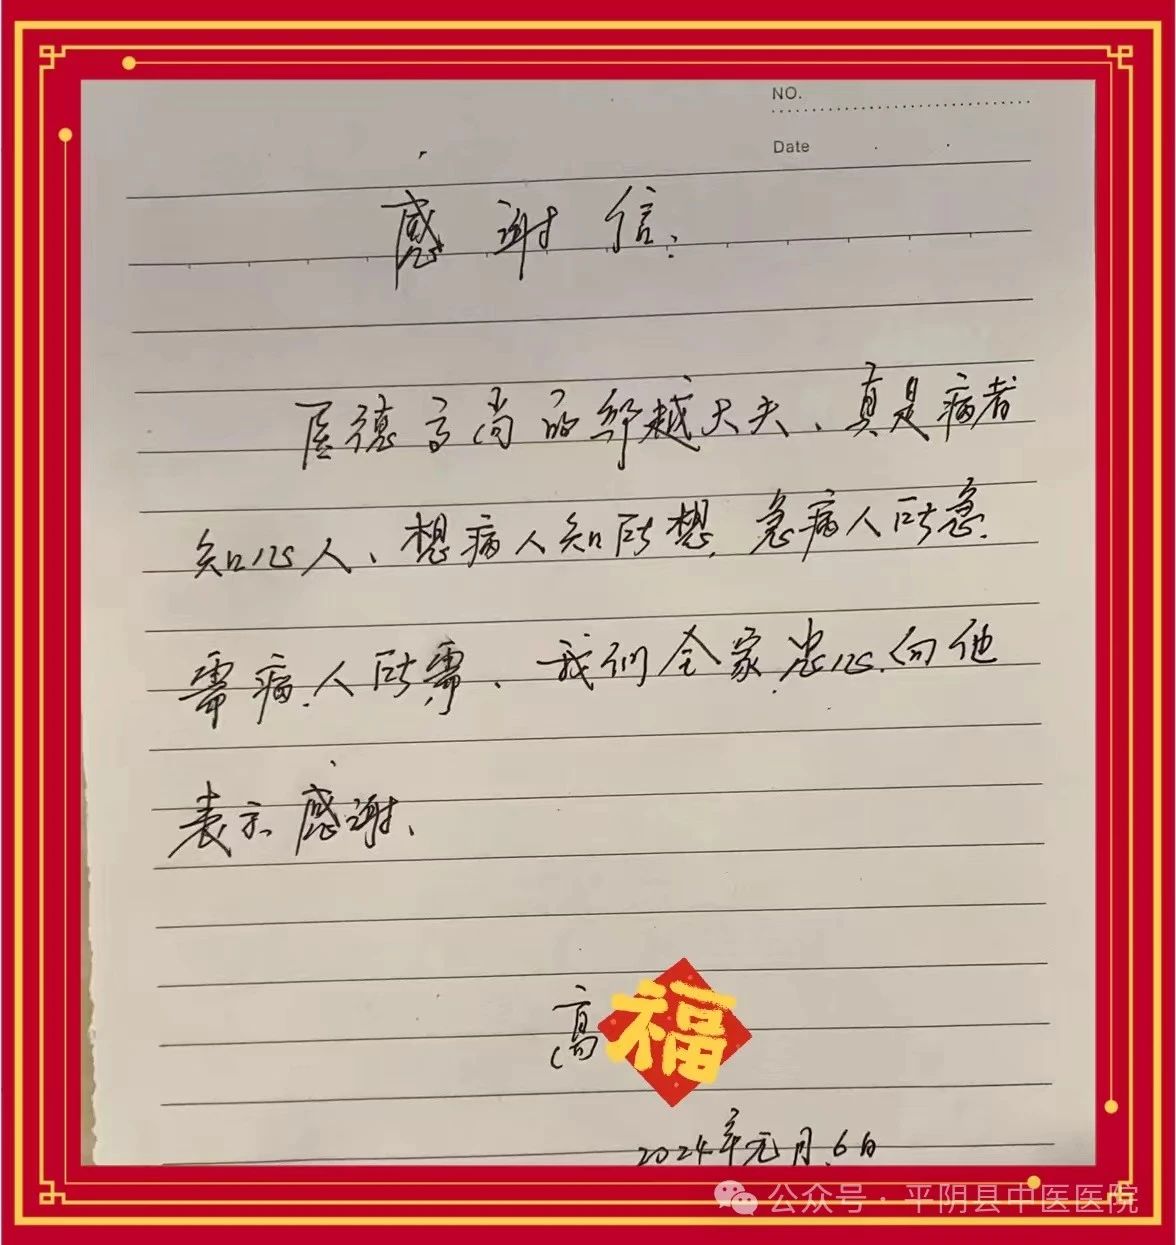 NO.
Date
感谢信.
医德高尚的邹越大夫、真是病者
知心人、想病人知所想,急病人所急.
需病人所需、我们全家忠心向他
表示感谢、
高
福
2024年元月6日
公众号·平阴县中医医院